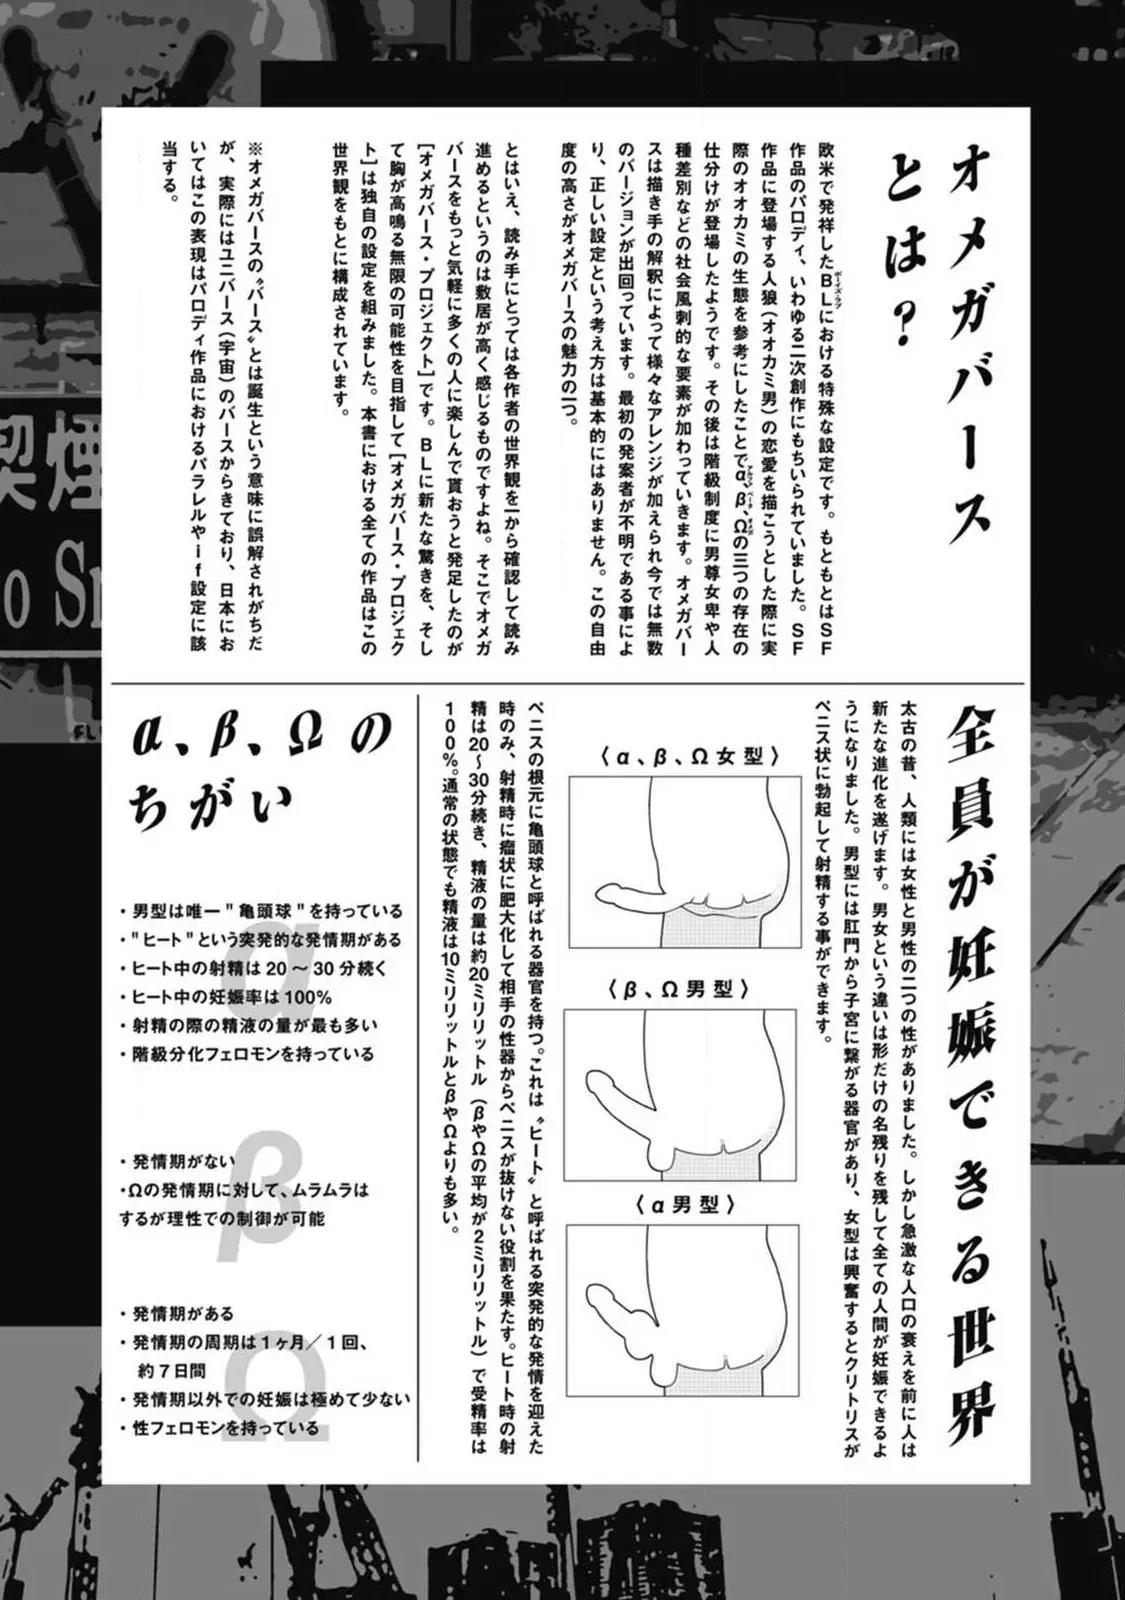 オメガバース
とは?
欧米で発祥したBLにおける特殊な設定です。もともとはSF
ボーイズ・ラブ
作品のパロディ、いわゆる二次創作にもちいられていました。SF
作品に登場する人狼(オオカミ男)の恋愛を描こうとした際に実
際のオオカミの生態を参考にしたことでα、β、Ωの三つの存在の
アルファ ベータ オメガ
仕分けが登場したようです。その後は階級制度に男尊女卑や人
種差別などの社会風刺的な要素が加わっていきます。オメガバー
スは描き手の解釈によって様々なアレンジが加えられ今では無数
のバージョンが出回っています。最初の発案者が不明である事によ
り、正しい設定という考え方は基本的にはありません。この自由
度の高さがオメガバースの魅力の一つ。
とはいえ、読み手にとっては各作者の世界観を一から確認して読み
進めるというのは敷居が高く感じるものですよね。そこでオメガ
バースをもっと気軽に多くの人に楽しんで貰おうと発足したのが
[オメガバース・プロジェクト]です。BLに新たな驚きを、そし
て胸が高鳴る無限の可能性を目指して[オメガバース・プロジェク
ト]は独自の設定を組みました。本書における全ての作品はこの
世界観をもとに構成されています。
※オメガバースの〝バース〟とは誕生という意味に誤解されがちだ
が、実際にはユニバース(宇宙)のバースからきており、日本にお
いてはこの表現はパロディ作品におけるパラレルやif設定に該
当する。
全員が妊娠できる世界
太古の昔、人類には女性と男性の二つの性がありました。しかし急激な人口の衰えを前に人は
新たな進化を遂げます。男女という違いは形だけの名残りを残して全ての人間が妊娠できるよ
うになりました。男型には肛門から子宮に繋がる器官があり、女型は興奮するとクリトリスが
ペニス状に勃起して射精する事ができます。
〈α、β、Ω女型〉
〈β、Ω男型〉
〈α男型〉
ペニスの根元に亀頭球と呼ばれる器官を持つ。これは〝ヒート〟と呼ばれる突発的な発情を迎えた
時のみ、射精時に瘤状に肥大化して相手の性器からペニスが抜けない役割を果たす。ヒート時の射
精は20〜30分続き、精液の量は約20ミリリットル(βやΩの平均が2ミリリットル)で受精率は
100%。通常の状態でも精液は10ミリリットルとβやΩよりも多い。
α、β、Ωの
ちがい
α
・男型は唯一"亀頭球"を持っている
・"ヒート"という突発的な発情期がある
・ヒート中の射精は20〜30分続く
・ヒート中の妊娠率は100%
・射精の際の精液の量が最も多い
・階級分化フェロモンを持っている
β
・発情期がない
・Ωの発情期に対して、ムラムラは
するが理性での制御が可能
Ω
・発情期がある
・発情期の周期は1ヶ月/1回、
約7日間
・発情期以外での妊娠は極めて少ない
・性フェロモンを持っている
喫煙
o Sm